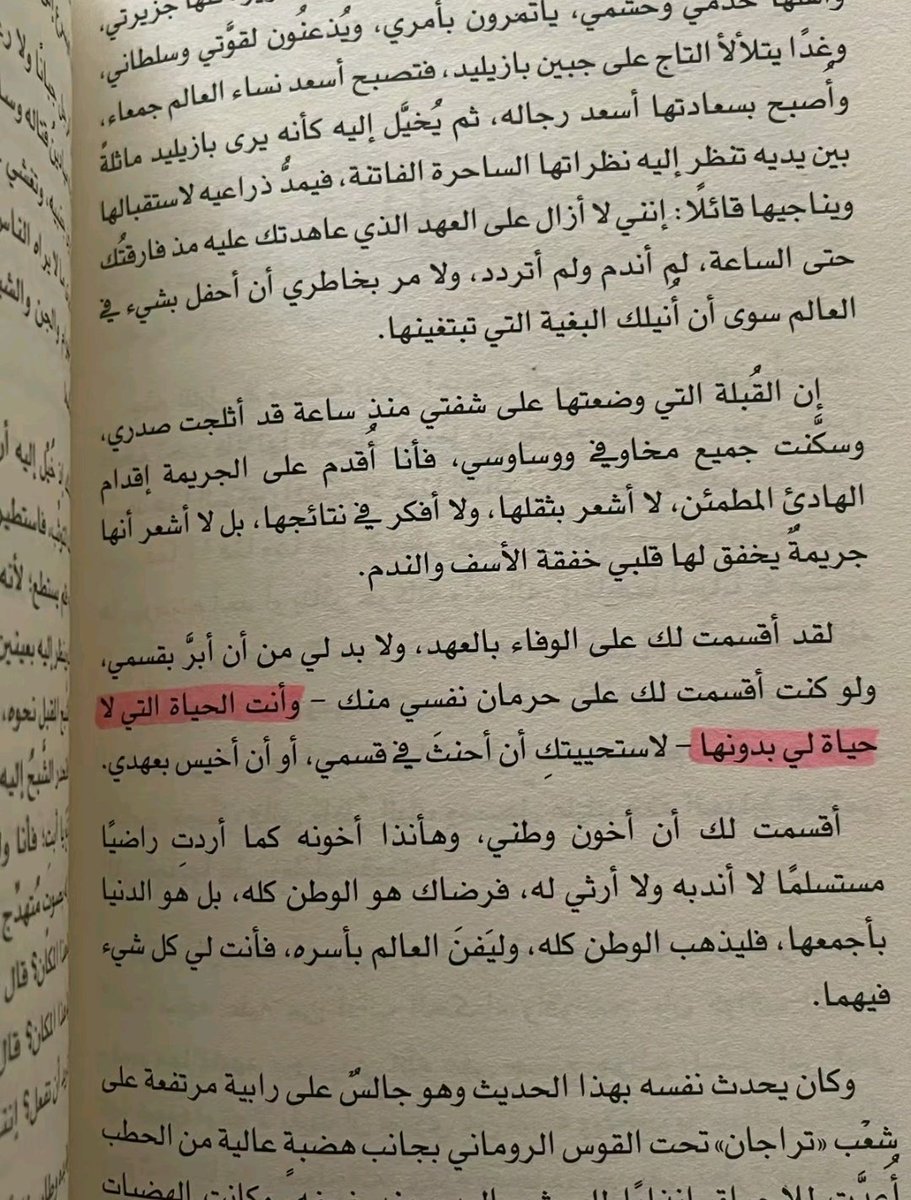 خدمي وحشمي، يأتمرون بأمري، ويُذعنُون لقوَّتي وسلطاني،
وغدًا يتلألأ التاج على جبين بازيليد، فتصبح أسعد نساء العالم جمعاء،
وأُصبح بسعادتها أسعد رجاله، ثم يُخيَّل إليه كأنه يرى بازيليد ماثلةً
بين يديه تنظر إليه نظراتها الساحرة الفاتنة، فيمدُّ ذراعيه لاستقبالها
ويناجيها قائلًا: إنني لا أزال على العهد الذي عاهدتك عليه مذ فارقتُك
حتى الساعة، لم أندم ولم أتردد، ولا مر بخاطري أن أحفل بشيء في
العالم سوى أن أُنيلك البغية التي تبتغينها.
إن القُبلة التي وضعتها على شفتي منذ ساعة قد أثلجت صدري،
وسكَّنت جميع مخاوفي ووساوسي، فأنا أُقدم على الجريمة إقدام
الهادئ المطمئن، لا أشعر بثقلها، ولا أفكر في نتائجها، بل لا أشعر أنها
جريمةٌ يخفق لها قلبي خفقة الأسف والندم.
لقد أقسمت لك على الوفاء بالعهد، ولا بد لي من أن أبرَّ بقسمي،
ولو كنت أقسمت لك على حرمان نفسي منك – وأنت الحياة التي لا
حياة لي بدونها – لاستحييتكِ أن أحنثَ في قسمي، أو أن أخيس بعهدي.
أقسمت لك أن أخون وطني، وهأنذا أخونه كما أردتِ راضيًا
مستسلمًا لا أندبه ولا أرثي له، فرضاك هو الوطن كله، بل هو الدنيا
بأجمعها، فليذهب الوطن كله، وليَفنَ العالم بأسره، فأنت لي كل شيء
فيهما.
وكان يحدث نفسه بهذا الحديث وهو جالسٌ على رابية مرتفعة على
شعْب «تراجان» تحت القوس الروماني بجانب هضبةٍ عالية من الحطب